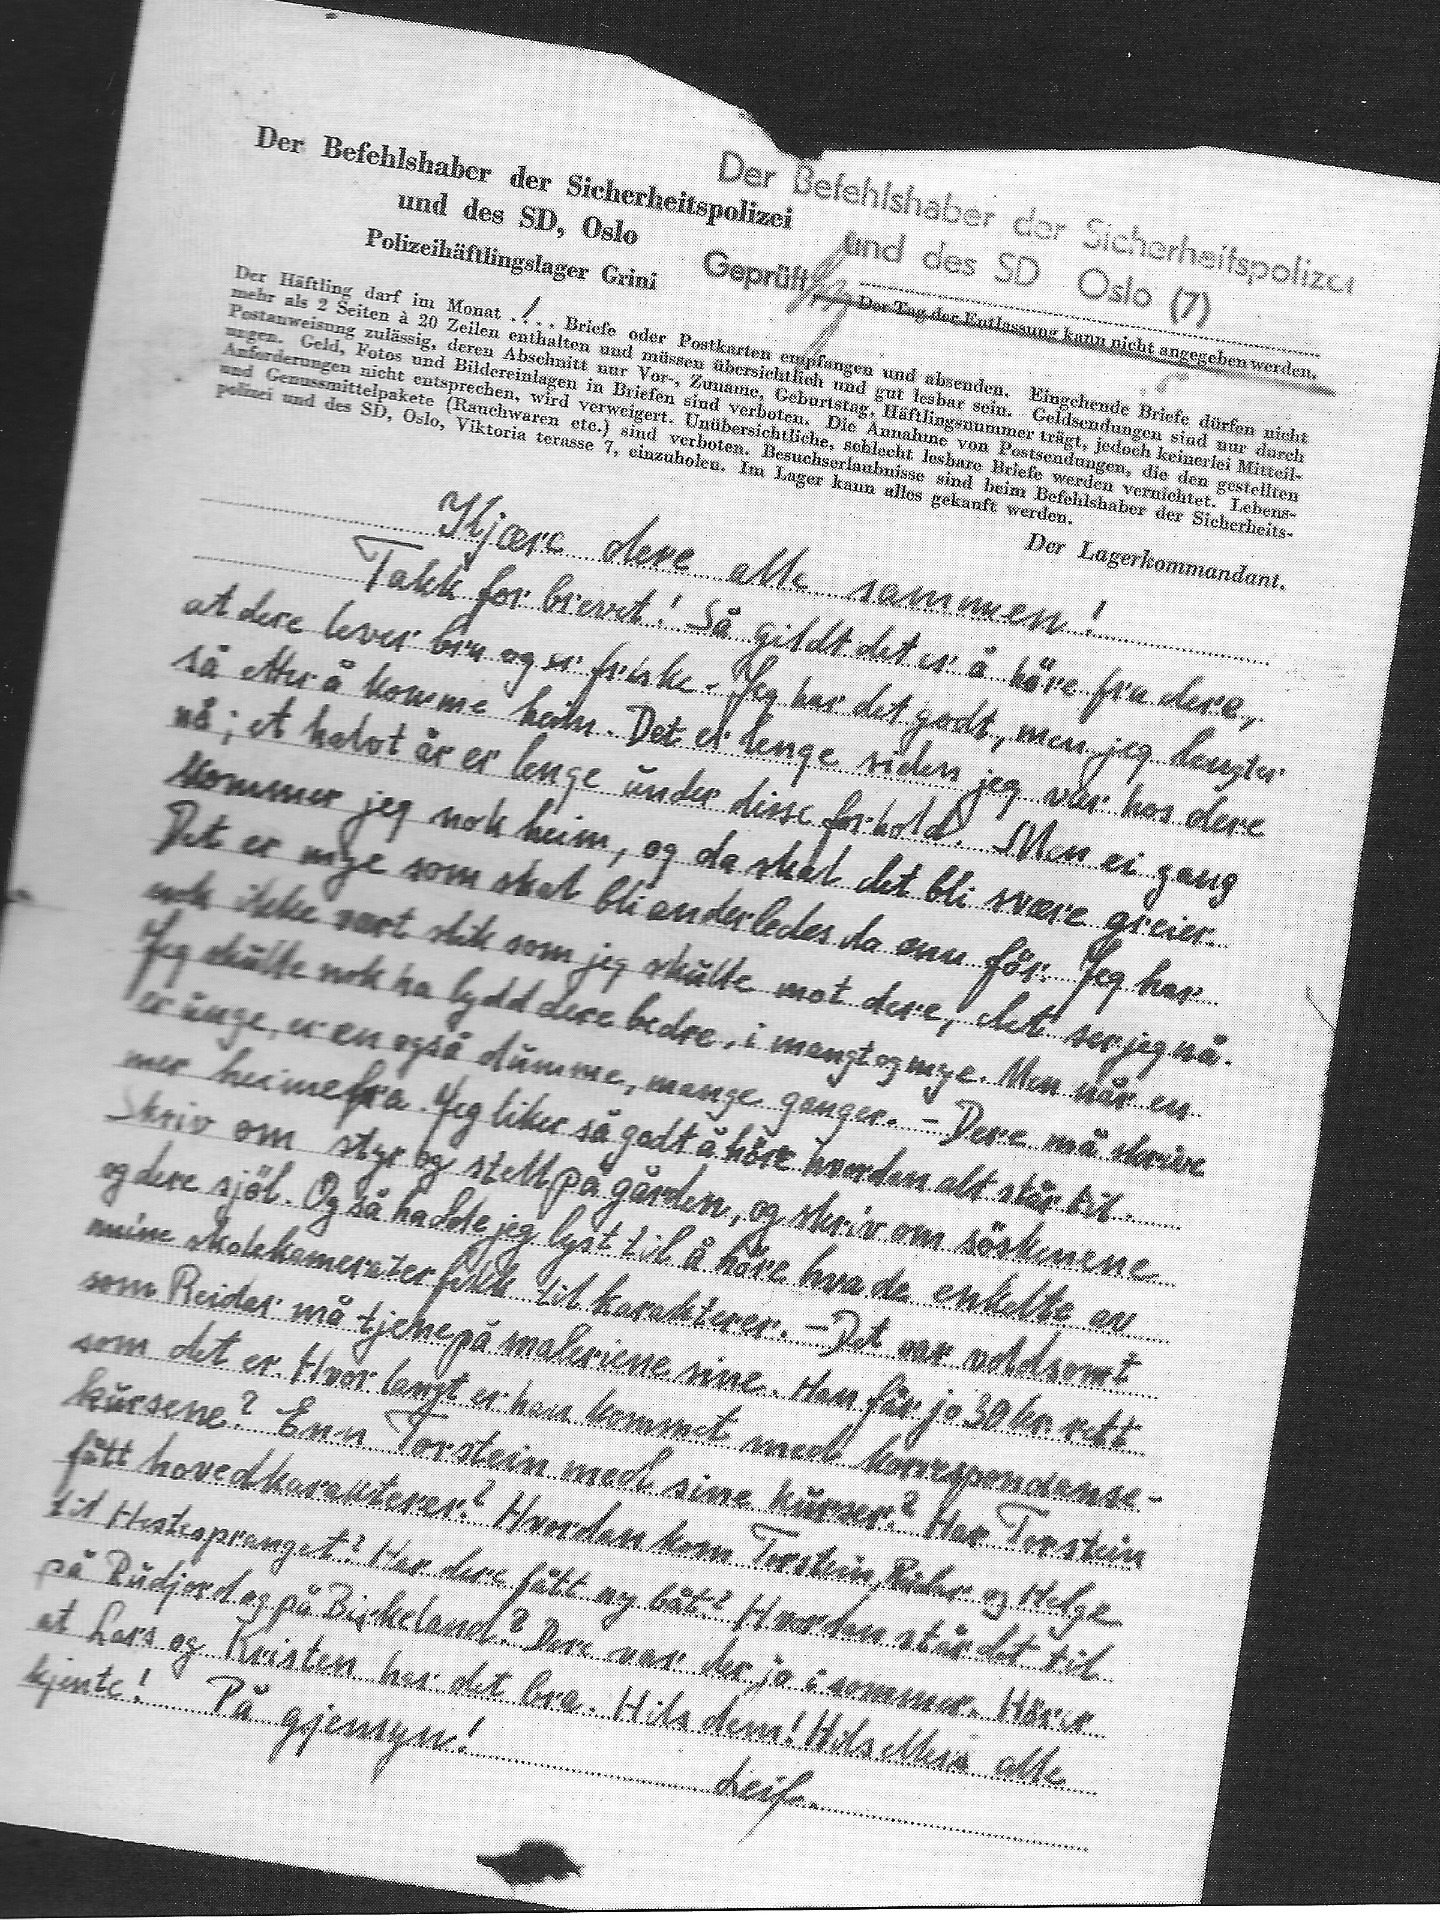 Der Befehlshaber der Sicherheitspolizei
und des SD, Oslo
Polizeihäftlingslager Grini
Der Befehlshaber der Sicherheitspolizei
und des SD Oslo (7)
Geprüft:
Der Tag der Entlassung kann nicht angegeben werden.
Der Häftling darf im Monat .1... Briefe oder Postkarten empfangen und absenden. Eingehende Briefe dürfen nicht
mehr als 2 Seiten à 20 Zeilen enthalten und müssen übersichtlich und gut lesbar sein. Geldsendungen sind nur durch
Postanweisung zulässig, deren Abschnitt nur Vor-, Zuname, Geburtstag, Häftlingsnummer trägt, jedoch keinerlei Mitteil-
ungen. Geld, Fotos und Bildereinlagen in Briefen sind verboten. Die Annahme von Postsendungen, die den gestellten
Anforderungen nicht entsprechen, wird verweigert. Unübersichtliche, schlecht lesbare Briefe werden vernichtet. Lebens-
und Genussmittelpakete (Rauchwaren etc.) sind verboten. Besuchserlaubnisse sind beim Befehlshaber der Sicherheits-
polizei und des SD, Oslo, Viktoria terasse 7, einzuholen. Im Lager kann alles gekauft werden.
Der Lagerkommandant.
Kjære dere alle sammen!
Takk for brevet! Så gildt det er å höre fra dere,
at dere lever bra og er friske - Jeg har det godt, men jeg lengter
så etter å komme heim. Det er lenge siden jeg var hos dere
nå; et halvt år er lenge under disse forhold. Men ei gang
kommer jeg nok heim, og da skal det bli svære greier.
Det er mye som skal bli anderledes da enn för. Jeg har
nok ikke vært slik som jeg skulle mot dere, det ser jeg nå.
Jeg skulle nok ha lydd dere bedre, i mangt og mye. Men når en
er unge, er en også dumme, mange ganger. - Dere må skrive
mer heimefra. Jeg liker så godt å höre hvordan alt står til.
Skriv om styr og stell på gården, og skriv om söskenene
og dere sjöl. Og så hadde jeg lyst til å höre hva de enkelte av
mine skolekamerater fikk til karakterer. - Det var voldsomt
som Reidar må tjene på maleriene sine. Han får jo 30 kr. rett
som det er. Hvor langt er han kommet med korrespondanse-
kursene? Enn Torstein med sine kurser? Har Torstein
fått hovedkarakterer? Hvordan kom Torstein, Reidar og Helge
til Hestespranget? Har dere fått ny båt? Hvordan står det til
på Rudjord og på Birkeland? Dere var der jo i sommer. Hörer
at Lars og Kristen har det bra. Hils dem! Hils ellers alle
kjente! På gjensyn!
Leif.